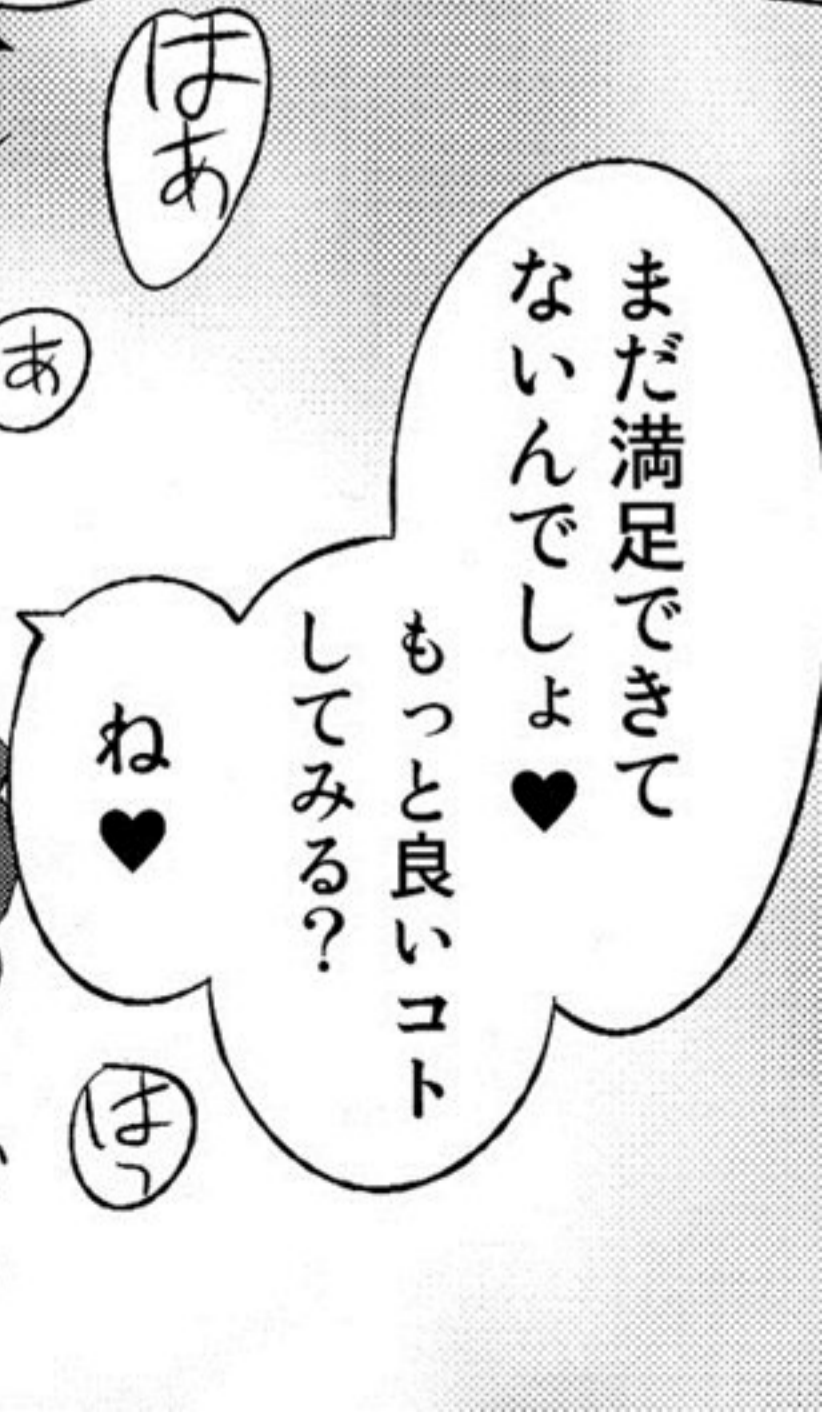 まだ満足できて
ないんでしょ♥
もっと良いコト
してみる？
ね♥
はぁ
あ
はっ